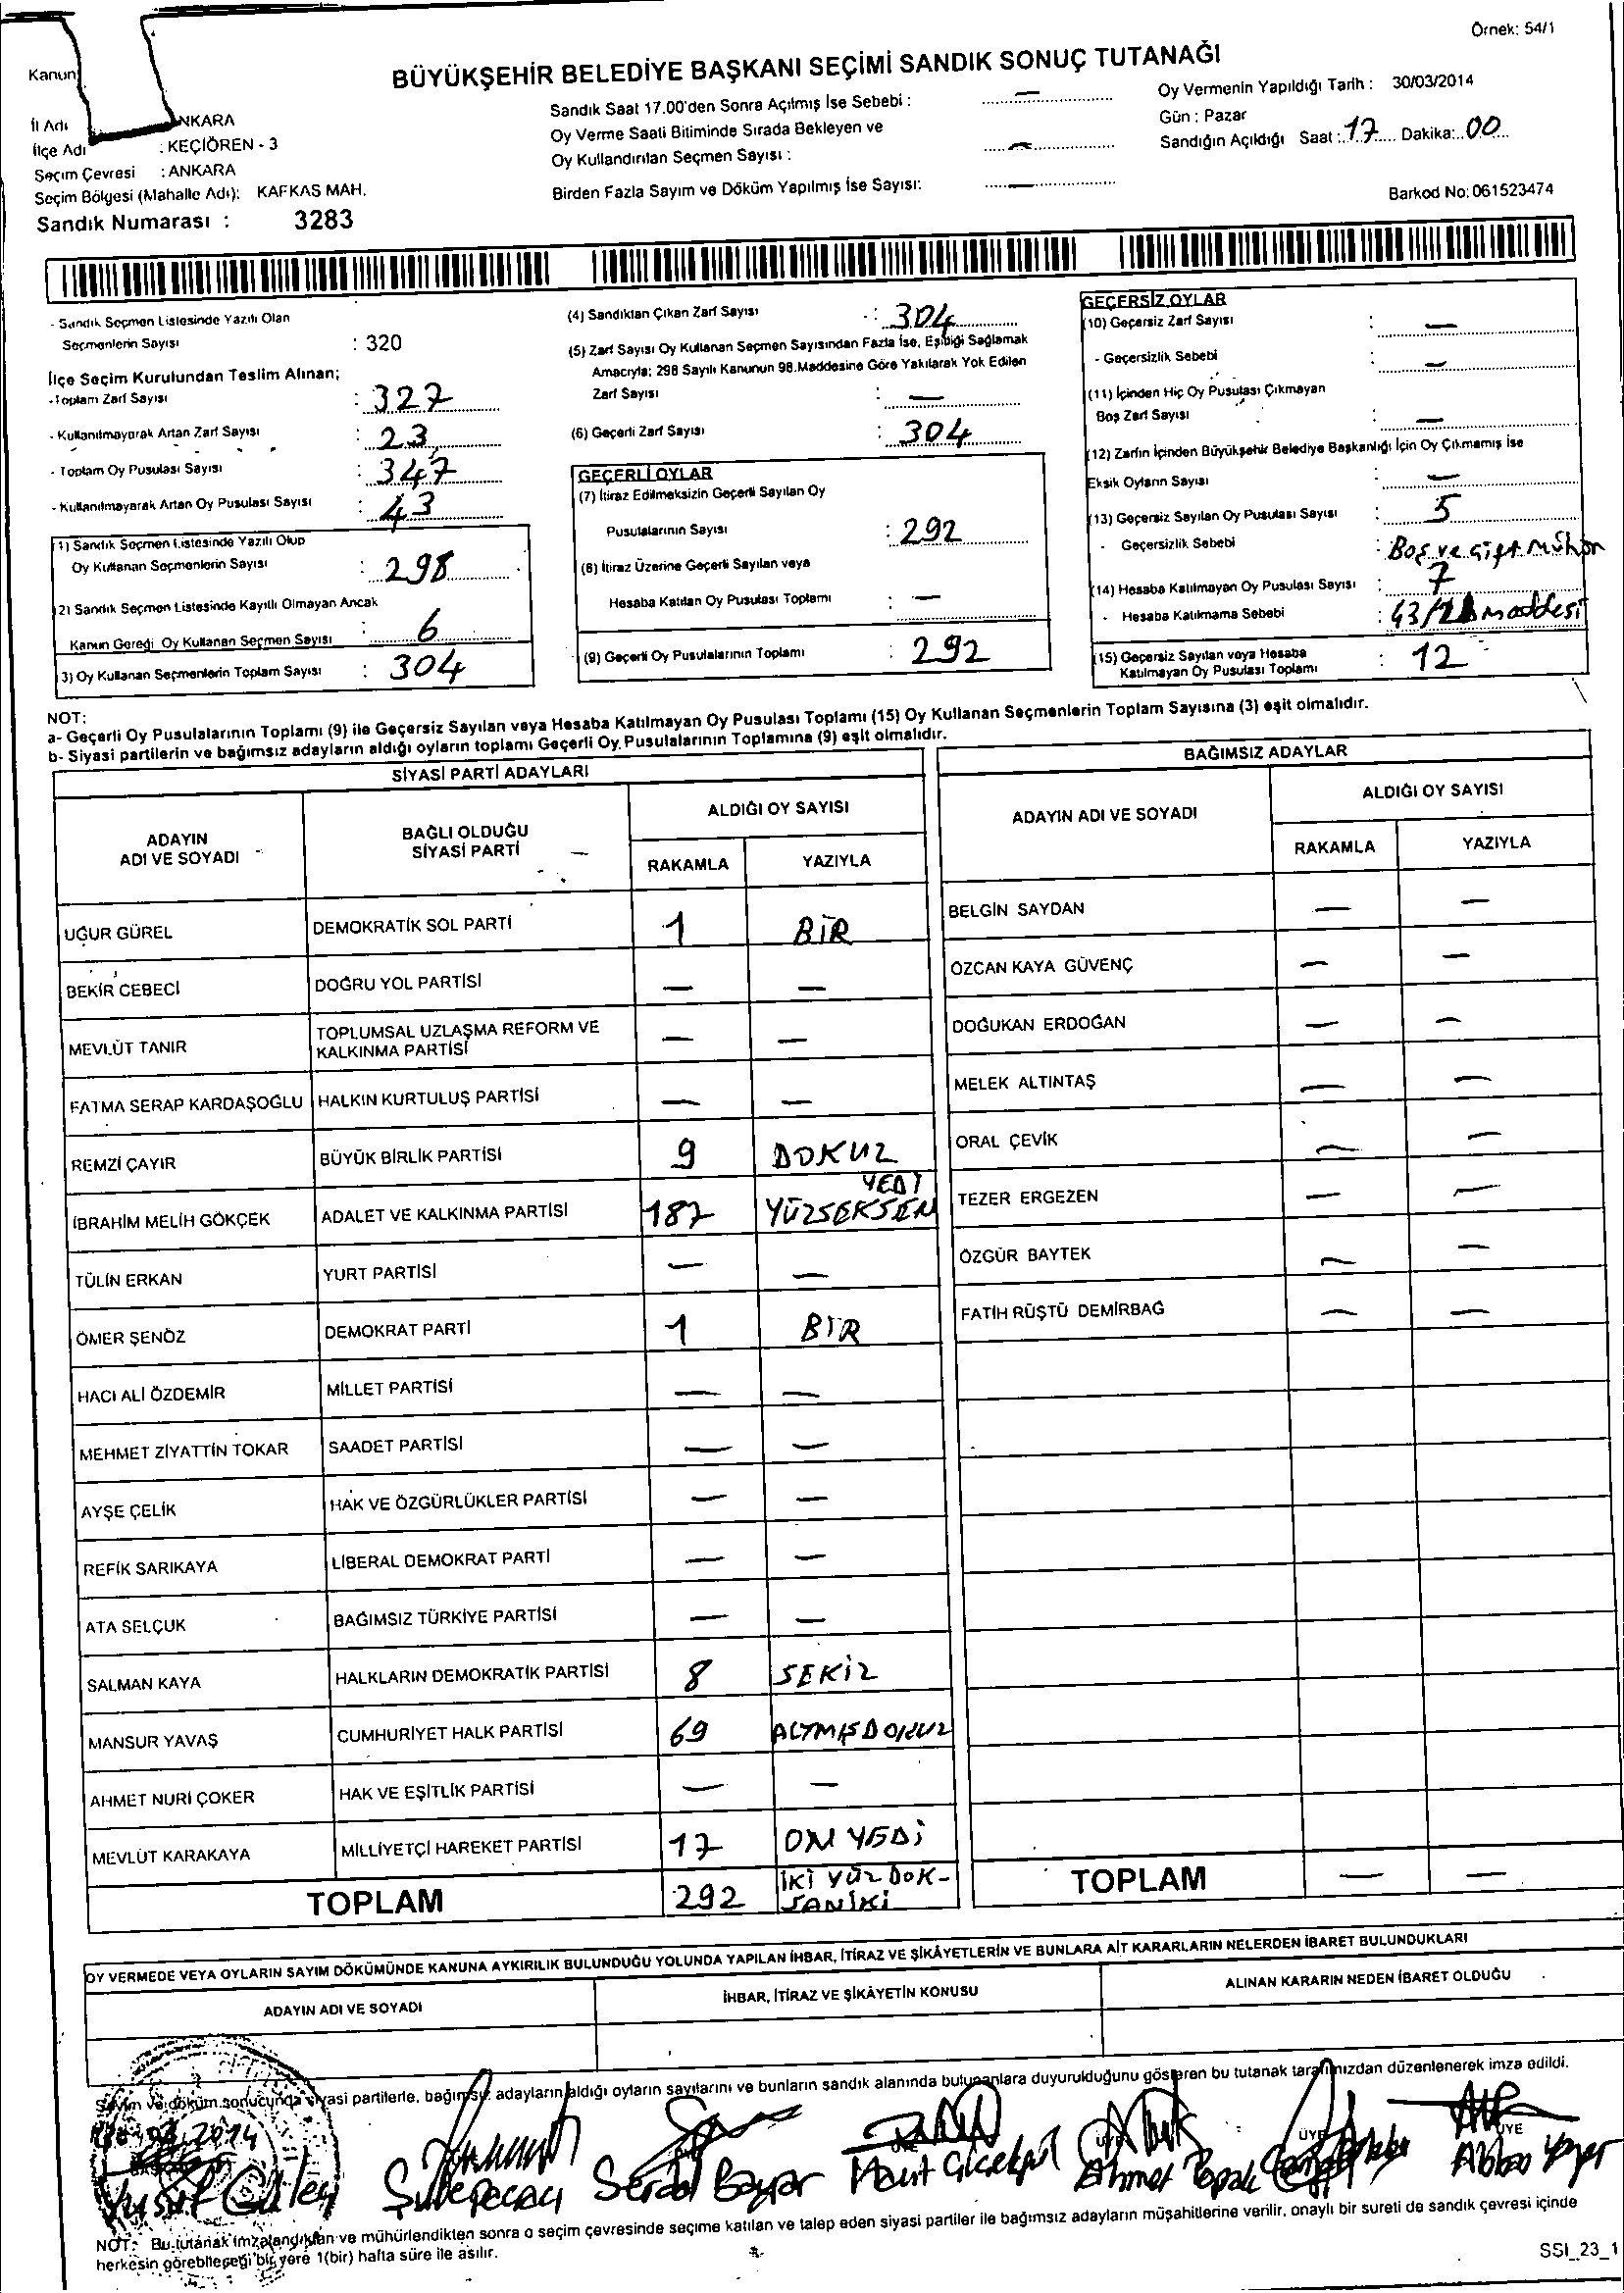 Örnek: 54/1
Kanun
BÜYÜKŞEHİR BELEDİYE BAŞKANI SEÇİMİ SANDIK SONUÇ TUTANAĞI
İl Adı NKARA
İlçe Adı : KEÇİÖREN - 3
Seçim Çevresi : ANKARA
Seçim Bölgesi (Mahalle Adı): KAFKAS MAH.
Sandık Numarası : 3283
Sandık Saat 17.00'den Sonra Açılmış İse Sebebi : —
Oy Verme Saati Bitiminde Sırada Bekleyen ve
Oy Kullandırılan Seçmen Sayısı : —
Birden Fazla Sayım ve Döküm Yapılmış İse Sayısı: —
Oy Vermenin Yapıldığı Tarih : 30/03/2014
Gün : Pazar
Sandığın Açıldığı Saat : 17 Dakika: 00
Barkod No: 061523474
- Sandık Seçmen Listesinde Yazılı Olan
Seçmenlerin Sayısı : 320
İlçe Seçim Kurulundan Teslim Alınan;
- Toplam Zarf Sayısı : 327
- Kullanılmayarak Artan Zarf Sayısı : 23
- Toplam Oy Pusulası Sayısı : 347
- Kullanılmayarak Artan Oy Pusulası Sayısı : 43
(1) Sandık Seçmen Listesinde Yazılı Olup
Oy Kullanan Seçmenlerin Sayısı : 298
(2) Sandık Seçmen Listesinde Kayıtlı Olmayan Ancak
Kanun Gereği Oy Kullanan Seçmen Sayısı : 6
(3) Oy Kullanan Seçmenlerin Toplam Sayısı : 304
(4) Sandıktan Çıkan Zarf Sayısı : 304
(5) Zarf Sayısı Oy Kullanan Seçmen Sayısından Fazla İse, Eşitliği Sağlamak
Amacıyla; 298 Sayılı Kanunun 98.Maddesine Göre Yakılarak Yok Edilen
Zarf Sayısı : —
(6) Geçerli Zarf Sayısı : 304
GEÇERLİ OYLAR
(7) İtiraz Edilmeksizin Geçerli Sayılan Oy
Pusulalarının Sayısı : 292
(8) İtiraz Üzerine Geçerli Sayılan veya
Hesaba Katılan Oy Pusulası Toplamı : —
(9) Geçerli Oy Pusulalarının Toplamı : 292
GEÇERSİZ OYLAR
(10) Geçersiz Zarf Sayısı : —
- Geçersizlik Sebebi : —
(11) İçinden Hiç Oy Pusulası Çıkmayan
Boş Zarf Sayısı : —
(12) Zarfın İçinden Büyükşehir Belediye Başkanlığı İçin Oy Çıkmamış İse
Eksik Oyların Sayısı : —
(13) Geçersiz Sayılan Oy Pusulası Sayısı : 5
- Geçersizlik Sebebi : Boş ve çift mühür
(14) Hesaba Katılmayan Oy Pusulası Sayısı : 7
- Hesaba Katılmama Sebebi : maddesi
(15) Geçersiz Sayılan veya Hesaba
Katılmayan Oy Pusulası Toplamı : 12
NOT:
a- Geçerli Oy Pusulalarının Toplamı (9) ile Geçersiz Sayılan veya Hesaba Katılmayan Oy Pusulası Toplamı (15) Oy Kullanan Seçmenlerin Toplam Sayısına (3) eşit olmalıdır.
b- Siyasi partilerin ve bağımsız adayların aldığı oyların toplamı Geçerli Oy Pusulalarının Toplamına (9) eşit olmalıdır.
SİYASİ PARTİ ADAYLARI
ADAYIN ADI VE SOYADI BAĞLI OLDUĞU SİYASİ PARTİ ALDIĞI OY SAYISI
RAKAMLA YAZIYLA
UĞUR GÜREL DEMOKRATİK SOL PARTİ 1 BİR
BEKİR CEBECİ DOĞRU YOL PARTİSİ — —
MEVLÜT TANIR TOPLUMSAL UZLAŞMA REFORM VE KALKINMA PARTİSİ — —
FATMA SERAP KARDAŞOĞLU HALKIN KURTULUŞ PARTİSİ — —
REMZİ ÇAYIR BÜYÜK BİRLİK PARTİSİ 9 DOKUZ
İBRAHİM MELİH GÖKÇEK ADALET VE KALKINMA PARTİSİ 187 YÜZSEKSEN YEDİ
TÜLİN ERKAN YURT PARTİSİ — —
ÖMER ŞENÖZ DEMOKRAT PARTİ 1 BİR
HACI ALİ ÖZDEMİR MİLLET PARTİSİ — —
MEHMET ZİYATTİN TOKAR SAADET PARTİSİ — —
AYŞE ÇELİK HAK VE ÖZGÜRLÜKLER PARTİSİ — —
REFİK SARIKAYA LİBERAL DEMOKRAT PARTİ — —
ATA SELÇUK BAĞIMSIZ TÜRKİYE PARTİSİ — —
SALMAN KAYA HALKLARIN DEMOKRATİK PARTİSİ 8 SEKİZ
MANSUR YAVAŞ CUMHURİYET HALK PARTİSİ 69 ALTMIŞDOKUZ
AHMET NURİ ÇOKER HAK VE EŞİTLİK PARTİSİ — —
MEVLÜT KARAKAYA MİLLİYETÇİ HAREKET PARTİSİ 17 ON YEDİ
TOPLAM 292 İKİ YÜZ DOK-
SANİKİ
BAĞIMSIZ ADAYLAR
ADAYIN ADI VE SOYADI ALDIĞI OY SAYISI
RAKAMLA YAZIYLA
BELGİN SAYDAN — —
ÖZCAN KAYA GÜVENÇ — —
DOĞUKAN ERDOĞAN — —
MELEK ALTINTAŞ — —
ORAL ÇEVİK — —
TEZER ERGEZEN — —
ÖZGÜR BAYTEK — —
FATİH RÜŞTÜ DEMİRBAĞ — —
TOPLAM — —
OY VERMEDE VEYA OYLARIN SAYIM DÖKÜMÜNDE KANUNA AYKIRILIK BULUNDUĞU YOLUNDA YAPILAN İHBAR, İTİRAZ VE ŞİKÂYETLERİN VE BUNLARA AİT KARARLARIN NELERDEN İBARET BULUNDUKLARI
ADAYIN ADI VE SOYADI İHBAR, İTİRAZ VE ŞİKÂYETİN KONUSU ALINAN KARARIN NEDEN İBARET OLDUĞU
Sayım ve döküm sonucunda siyasi partilerle, bağımsız adayların aldığı oyların sayılarını ve bunların sandık alanında bulunanlara duyurulduğunu gösteren bu tutanak tarafımızdan düzenlenerek imza edildi.
2014
ÜYE ÜYE
Yusuf Serdal Ahmet Abbas
NOT: Bu tutanak imzalandıktan ve mühürlendikten sonra o seçim çevresinde seçime katılan ve talep eden siyasi partiler ile bağımsız adayların müşahitlerine verilir, onaylı bir sureti de sandık çevresi içinde
herkesin görebileceği bir yere 1(bir) hafta süre ile asılır.
SSI_23_1